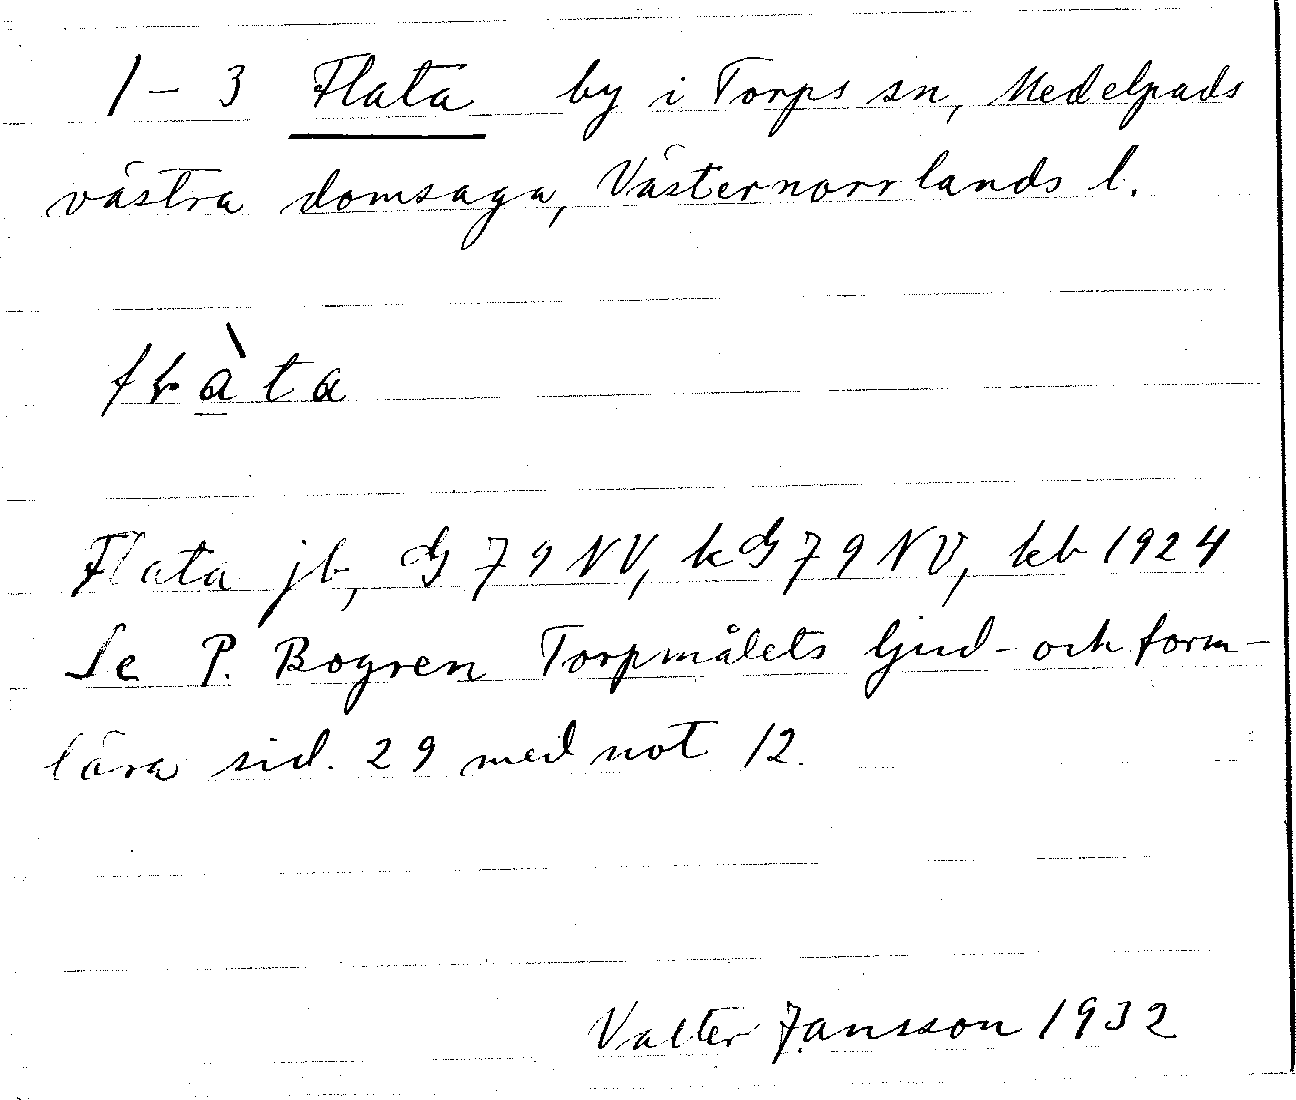 1-3 Flata by i Torps sn, Medelpads
västra domsaga, Västernorrlands l.
Flata jb, G 79 NV, k G 79 NV, kb 1924
Se P. Bogren Torpmålets ljud- och form-
lära sid. 29 med not 12.
Valter Jansson 1932